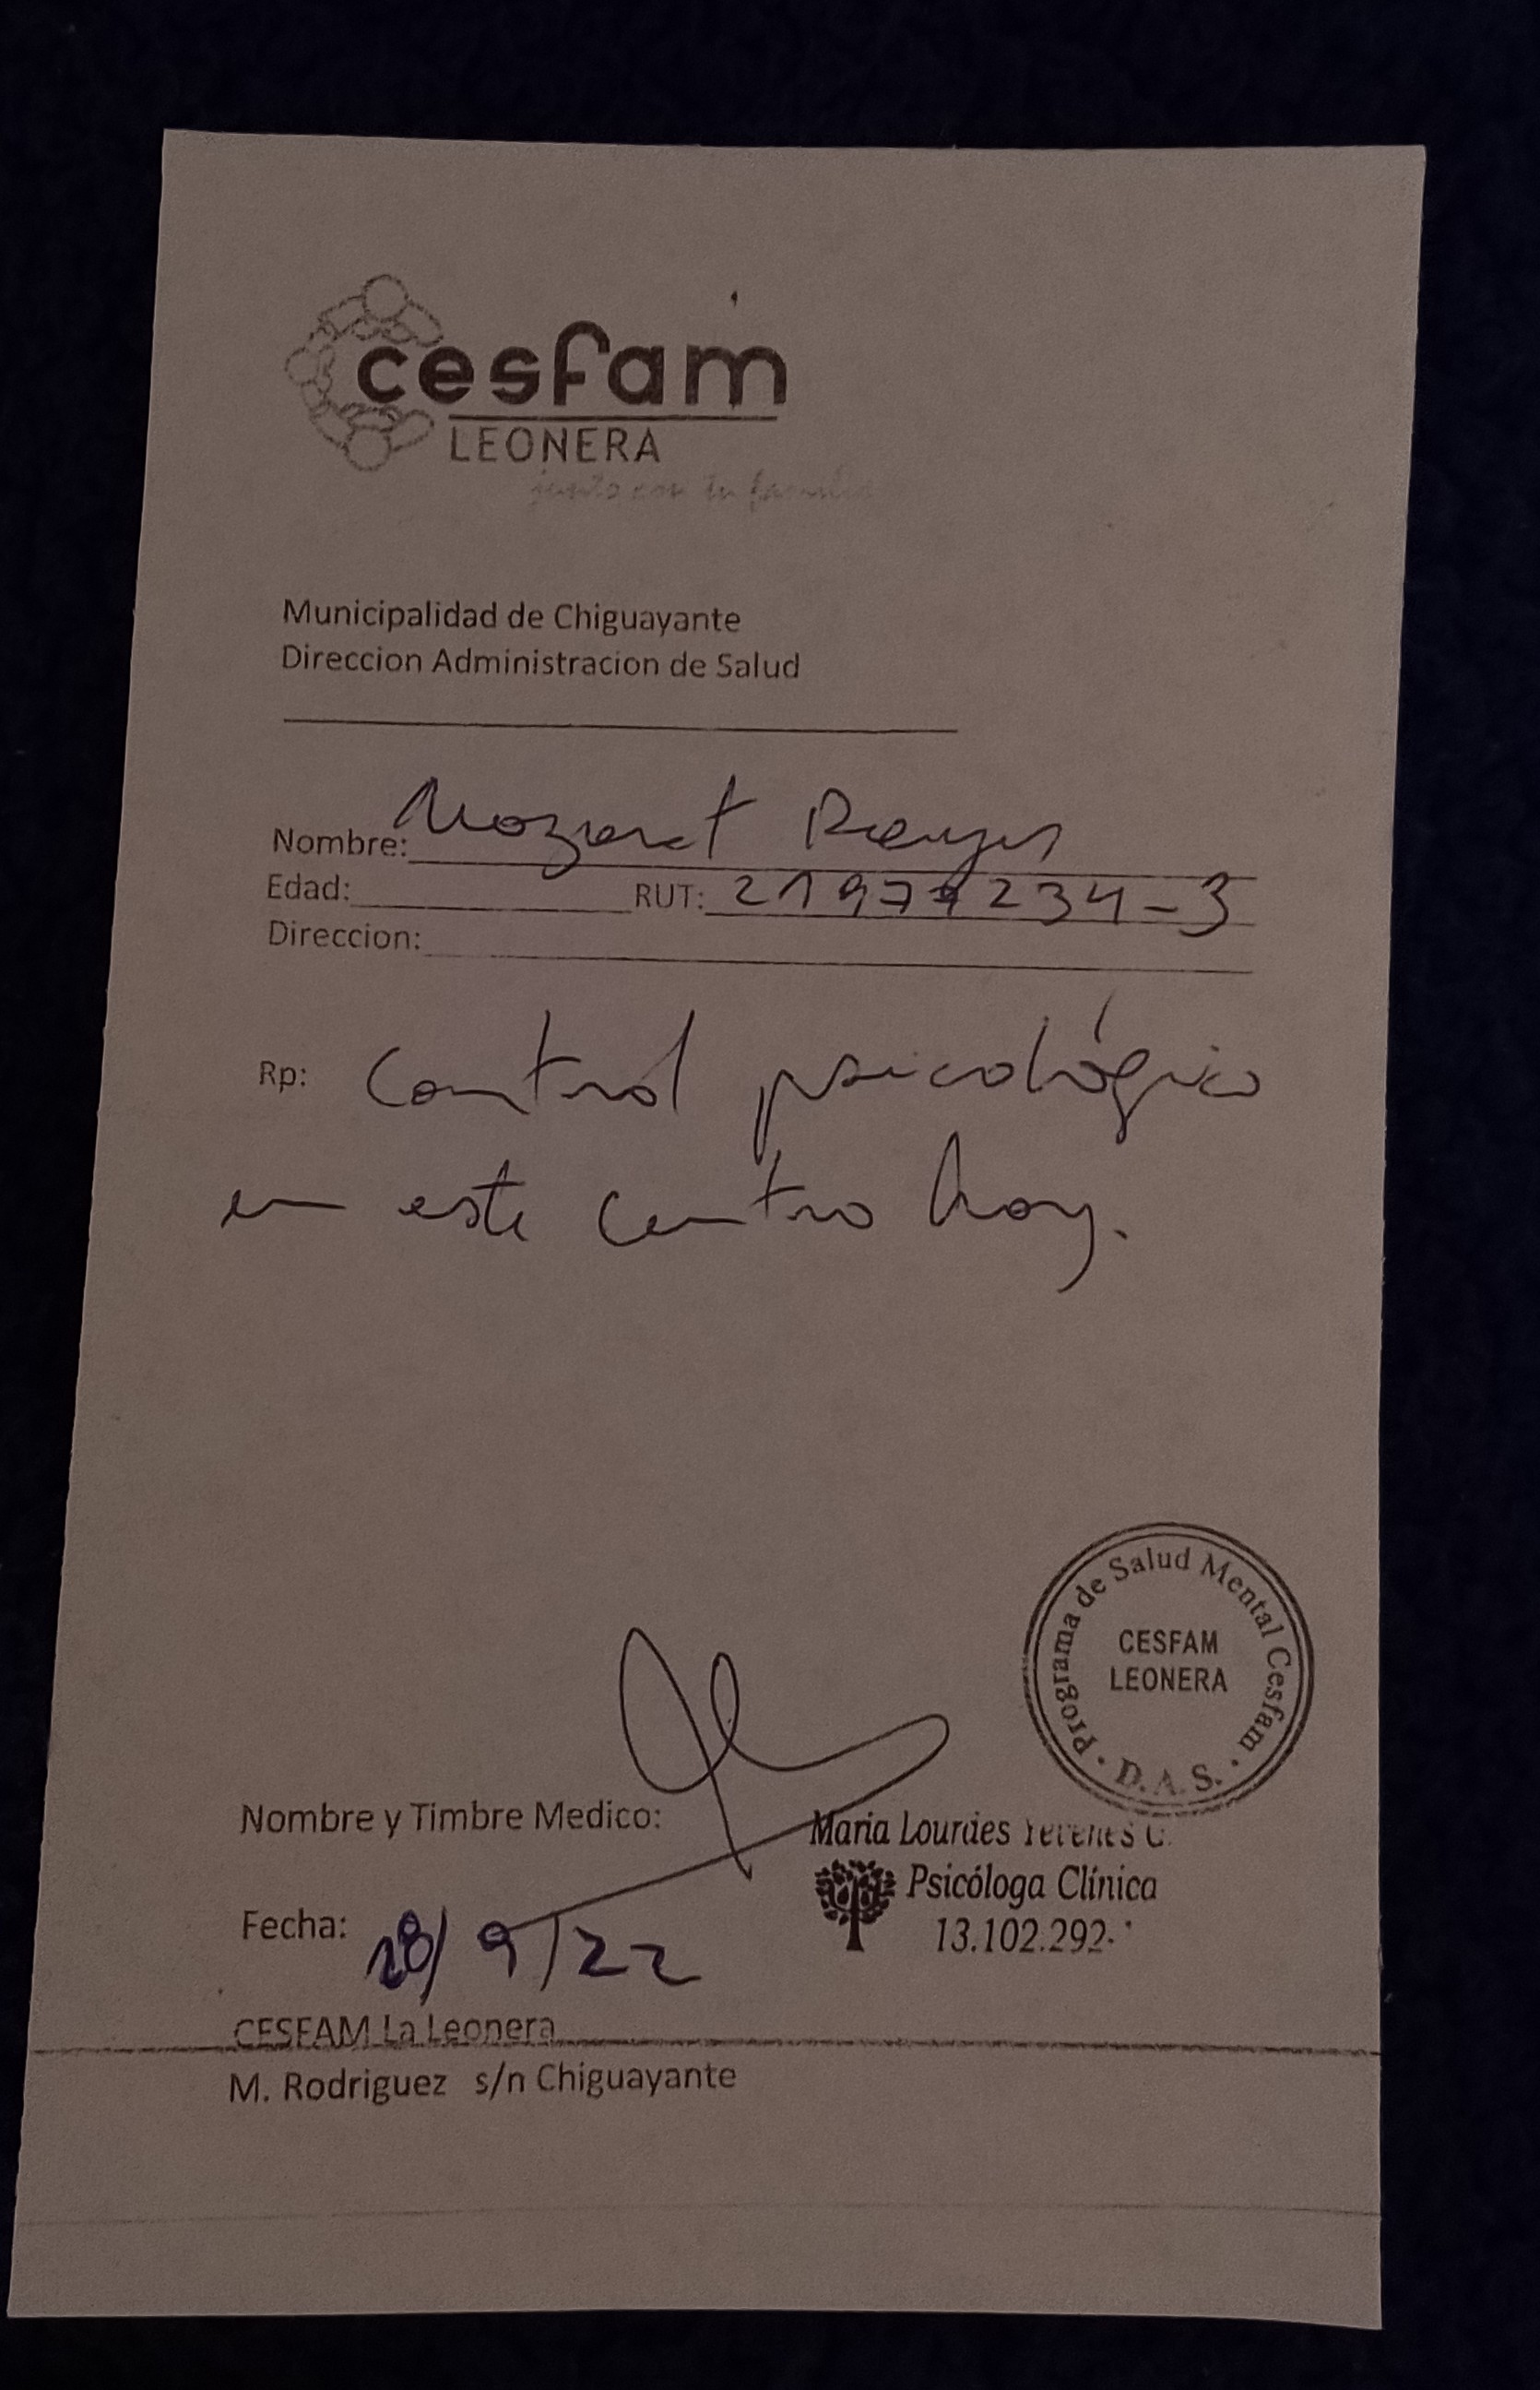 cesfam
LEONERA
junto con tu familia
Municipalidad de Chiguayante
Direccion Administracion de Salud
Nombre: Mozart Reyes
Edad: RUT: 21977234-3
Direccion:
Rp: Control psicológico
en este centro hoy.
Programa de Salud Mental Cesfam
CESFAM
LEONERA
D.A.S.
Nombre y Timbre Medico:
Maria Lourdes
Psicóloga Clínica
13.102.292-
Fecha: 28/9/22
CESFAM La Leonera
M. Rodriguez s/n Chiguayante